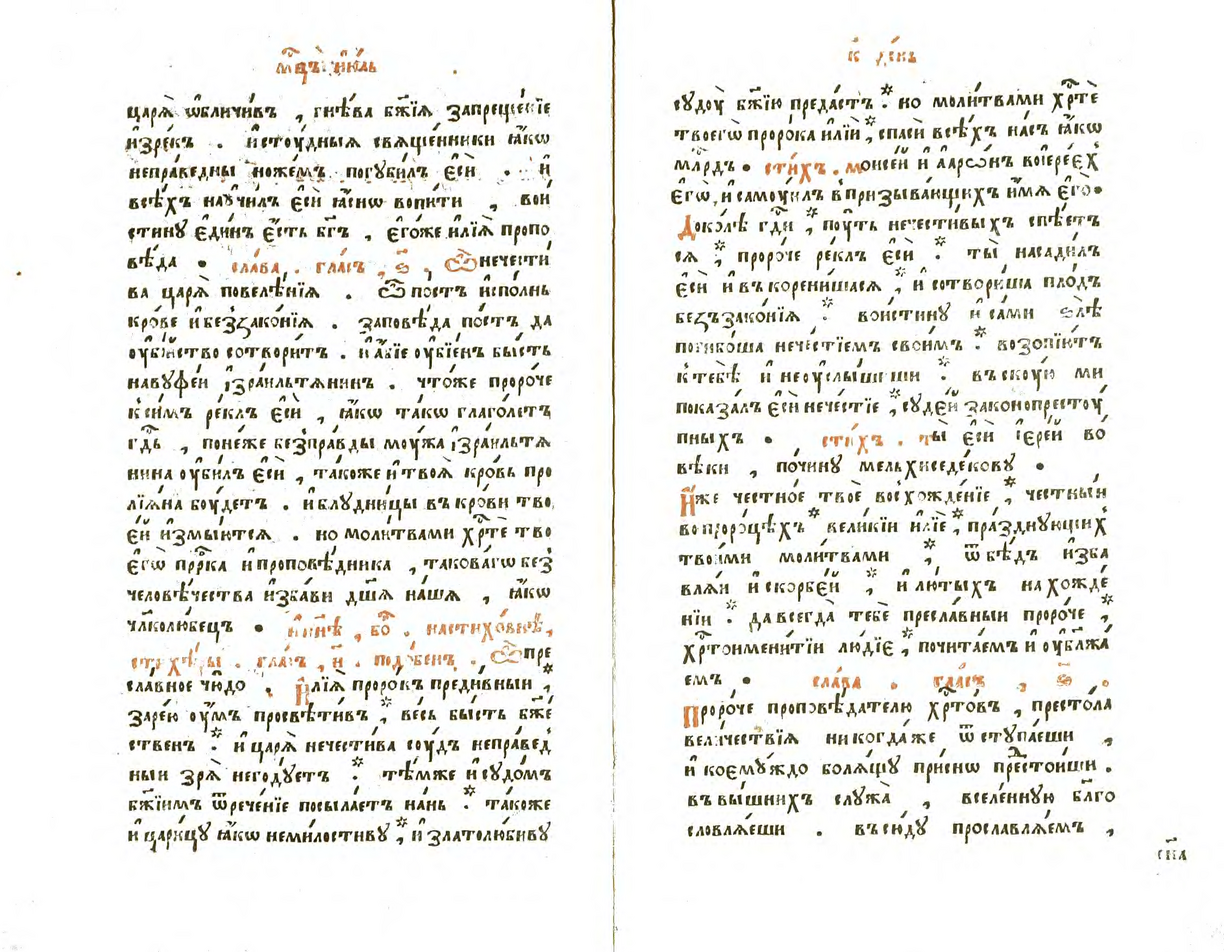 мⷭ҇цъ і҆ю́ль
царѧ̀ ѡ҆бличи́въ , гнѣ́ва бж҃їѧ запреще́нїе
и҆зре́къ . и҆стоу́дныѧ свѧще́нники ꙗ҆́кѡ
непра́ведны ноже́мъ погꙋби́лъ є҆сѝ . и҆
всѣ́хъ наꙋчи́лъ є҆сѝ ꙗ҆́снѡ вопи́ти , вои
стинꙋ є҆ди́нъ є҆́сть бг҃ъ , є҆го́же и҆лїѧ̀ пропо
вѣ́да . сла́ва , гла́съ , ѕ҃ , Ѿ нечести
ва царѧ̀ повелѣ́нїѧ . Ѿ по́стъ и҆спо́лнь
кро́ве и҆беззако́нїѧ . заповѣ́да по́стъ да
оу҆бі́йство сотвори́тъ . и҆а҆́бїе оу҆бїе́нъ бы́сть
навꙋѳе́й і҆зра́ильтѧнинъ . что́же проро́че
к си́мъ ре́клъ є҆сѝ , ꙗ҆́кѡ та́кѡ глаго́летъ
гдⷭ҇ь , поне́же безпра́вды моу́жа і҆зра́ильтѧ
нина оу҆би́лъ є҆сѝ , та́коже и҆ твоѧ̀ кро́вь про
лїѧ́на боу́детъ . и҆блꙋдни́цы въ кро́ви тво
є҆́й и҆змы́ютсѧ . но моли́твами хрⷭ҇тѐ тво
є҆гѡ̀ прⷪ҇ро́ка и҆проповѣ́дника , такова́гѡ без
человѣ́чества и҆зба́ви дш҃а на́шѧ , ꙗ҆́кѡ
чл҃колю́бецъ . и҆ны́нѣ , бо . на стихо́внѣ ,
стихѣ́ры . гла́съ , и҃ . подо́бенъ . Ѿ пре
сла́вное чю́до . И҆лїѧ̀ проро́къ преди́вный *,
заре́ю оу҆́мъ просвѣти́въ ,* ве́сь бы́сть бж҃е
ственъ .* и҆ царѧ̀ нечести́ва соу́дъ непра́вед
ный зрѧ̀ негодꙋ́етъ .* тѣ́мже и҆ сꙋдо́мъ
бж҃їимъ ѿрече́нїе посыла́етъ на́нь .* та́коже
и҆ цари́цꙋ ꙗ҆́кѡ неми́лостивꙋ ,* и҆ златолюби́вꙋ
к҃ де́нь
сꙋдоу̀ бж҃їю преда́стъ .* но моли́твами хрⷭ҇тѐ
твоегѡ̀ проро́ка и҆лїѝ ,* спасѝ всѣ́хъ на́съ ꙗ҆́кѡ
млⷭ҇рдъ . сти́хъ . моѷсе́й и҆ а҆арѡ́нъ во і҆ере́ех
є҆гѡ̀ , и҆ самоу́илъ в призыва́ющихъ и҆́мѧ є҆го̀ .
До́колѣ гдⷭ҇и ,* поу́ть нечести́выхъ спѣ́етъ
сѧ ,* проро́че ре́клъ є҆сѝ . ты̀ насади́лъ
є҆сѝ и҆ въкорени́шасѧ ,* и҆ сотвори́ша пло́дъ
безъзако́нїѧ .* вои́стинꙋ и҆ са́ми ѕлѣ̀
погибо́ша нече́стїемъ свои́мъ .* возопїю́тъ
к тебѣ̀ и҆ неоу҆слы́шиши .* въскоу́ю ми
показа́лъ є҆сѝ нече́стїе ,* сꙋде́й законопрестоу́
пныхъ . сти́хъ . ты̀ є҆сѝ і҆ере́й во
вѣ́ки , по чи́нꙋ мельхиседе́ковꙋ .
И҆́же че́стное твоѐ восхожде́нїе ,* че́стный
во проро́цѣхъ * вели́кїи и҆лїѐ ,* пра́зднꙋющих
твои́ми моли́твами ,* ѿ бѣ́дъ и҆зба
влѧ́й и҆ скорбе́й ,* и҆ лю́тыхъ нахожде́
нїи .* да всегда̀ тебѐ пресла́вный проро́че ,*
хрⷭ҇тоимени́тїи лю́дїе ,* почита́емъ и҆ оу҆блжа́
емъ . сла́ва . гла́съ , ѕ҃ .
Проро́че проповѣ́дателю хрⷭ҇то́въ , престо́ла
вели́чествїѧ никогда́же ѿстꙋпа́еши ,
и҆ коемꙋ́ждо болѧ́щꙋ при́снѡ прⷣстои́ши .
въ вы́шнихъ слꙋжа̀ , вселе́ннꙋю бл҃го
словлѧ́еши . въсю́дꙋ прославлѧ́емъ ,
сн҃а